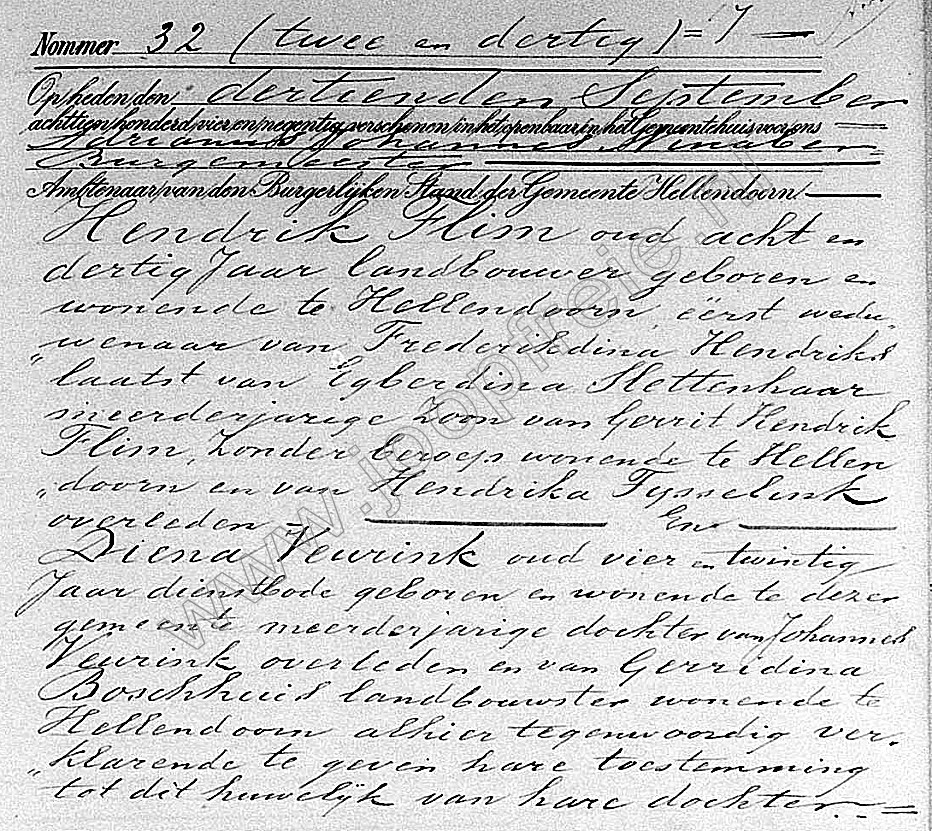 Nommer 32 (twee en dertig) = 7 —
Op heden den dertienden September
achttien honderd vier en negentig verschenen in het openbaar in het Gemeentehuis voor ons
Adrianus Johannes
Burgemeester
Ambtenaar van den Burgerlijken Stand der Gemeente Hellendoorn.
Hendrik Flim oud acht en
dertig Jaar landbouwer geboren en
wonende te Hellendoorn, eerst wedu„
„wenaar van Frederikdina Hendriks
„laatst van Egberdina Slettenhaar
meerderjarige zoon van Gerrit Hendrik
Flim, zonder beroep wonende te Hellen
„doorn en van Hendrika Tijsselink
overleden = En
Diena Veurink oud vier en twintig
Jaar dienstbode geboren en wonende te dezer
gemeente meerderjarige dochter van Johannes
Veurink overleden en van Gerridina
Boschhuis landbouwster wonende te
Hellendoorn alhier tegenwoordig ver„
„klarende te geven hare toestemming
tot dit huwelijk van hare dochter. =
www.joopfreie.nl